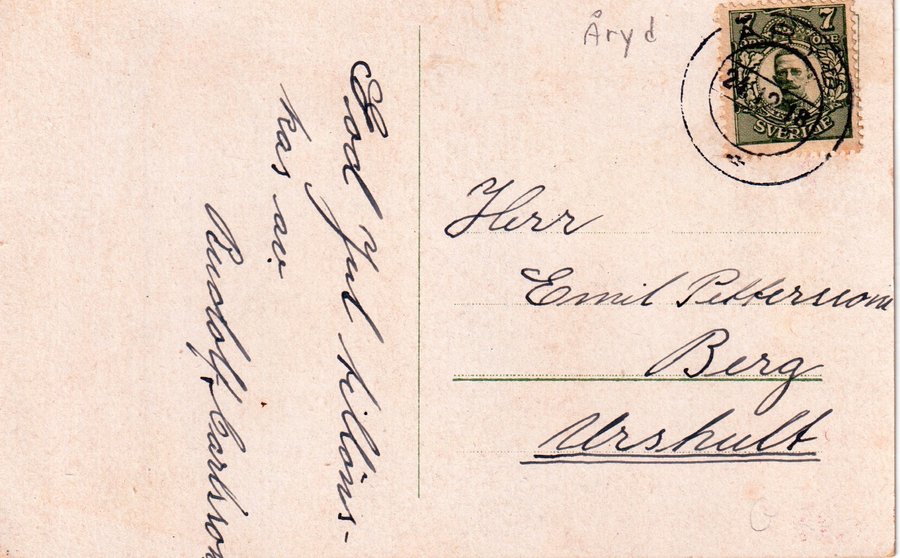 Åryd
7 7
ÖRE
SVERIGE
God Jul tillöns-
kas av
Rudolf Carlsson
Herr
Emil Pettersson
Berg
Urshult